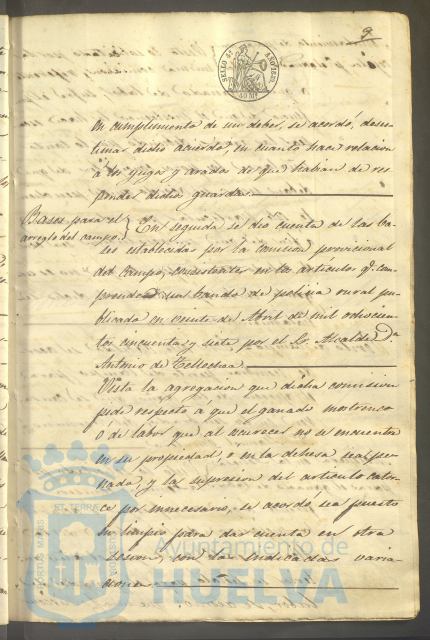 9
SELLO 4º
AÑO 1859
40 Ms
en cumplimento de su deber, se acordó, deses-
timar dicho acuerdo, en cuanto hace relacion
á los yugos y arados de que habian de res-
ponder dichos guardas.
Bases para el
arreglo del campo.
En seguida se dió cuenta de las ba-
ses establecidas por la comision provicional
del campo, concistentes en los artículos q. com-
prende un bando de policia rural pu-
blicado en veinte de Abril de mil ochocien-
tos cincuenta y siete por el Sr. Alcalde Dn
Antonio de Tellechea.
Vista la agregacion que dicha comision
pide respecto á que el ganado mostrenco
ó de labor que al oscurecer no se encuentre
en su propiedad, o en la dehesa sea pe-
nada, y la supresion del artículo cator-
ce por innecesario, se acordó sea puesto
en limpio para dar cuenta en otra
sesion, con las indicadas varia-
ciones
Ayuntamiento de
HUELVA